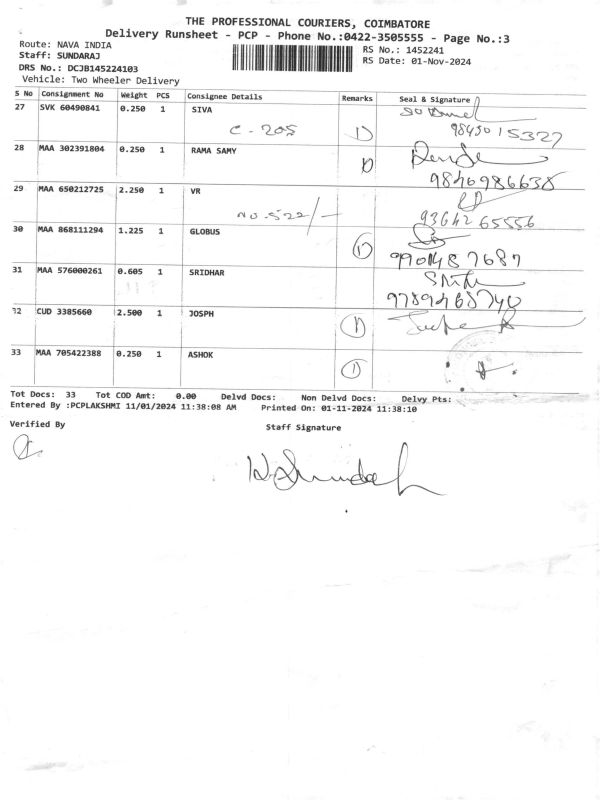 THE PROFESSIONAL COURIERS, COIMBATORE
Delivery Runsheet - PCP - Phone No.:0422-3505555 - Page No.:3
Route: NAVA INDIA
Staff: SUNDARAJ
DRS No.: DCJB145224103
Vehicle: Two Wheeler Delivery
RS No.: 1452241
RS Date: 01-Nov-2024
S No Consignment No Weight PCS Consignee Details Remarks Seal & Signature
27 SVK 60490841 0.250 1 SIVA
C-205 1) 9845015327
28 MAA 302391804 0.250 1 RAMA SAMY
1) 9840986638
29 MAA 650212725 2.250 1 VR
NO.522/- 9364265556
30 MAA 868111294 1.225 1 GLOBUS
1) 9901487687
31 MAA 576000261 0.605 1 SRIDHAR
9789468740
32 CUD 3385660 2.500 1 JOSPH
1)
33 MAA 705422388 0.250 1 ASHOK
1)
Tot Docs: 33 Tot COD Amt: 0.00 Delvd Docs: Non Delvd Docs: Delvy Pts:
Entered By :PCPLAKSHMI 11/01/2024 11:38:08 AM Printed On: 01-11-2024 11:38:10
Verified By
Staff Signature